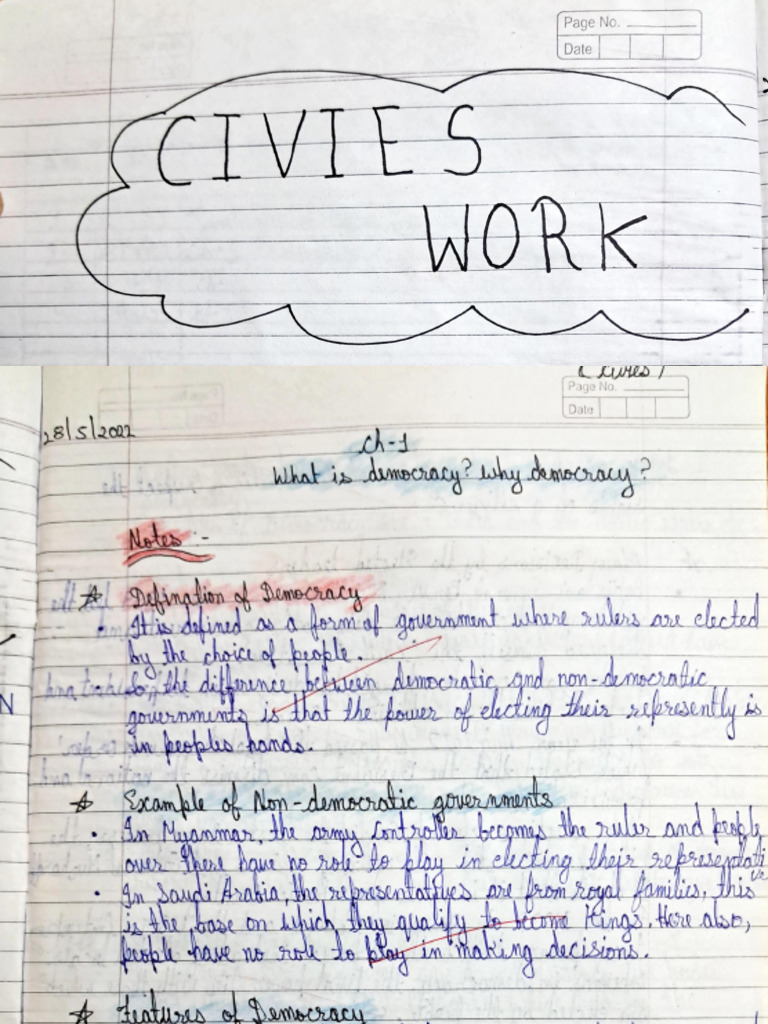 Page No.
Date
CIVIES
WORK
Page No.
Date
28/5/2022
Ch-1
What is democracy? why democracy?
Notes :-
☆ Defination of Democracy
• It is defined as a form of government where rulers are elected
by the choice of people.
• the difference between democratic and non-democratic
governments is that the power of electing their represently is
in peoples hands.
☆ Example of Non-democratic governments
• In Myanmar, the army controller becomes the ruler and people
over there have no role to play in electing their representative
• In Saudi Arabia, the representatives are from royal families, this
is the base on which they qualify to become Kings. Here also,
people have no role to play in making decisions.
☆ Features of Democracy